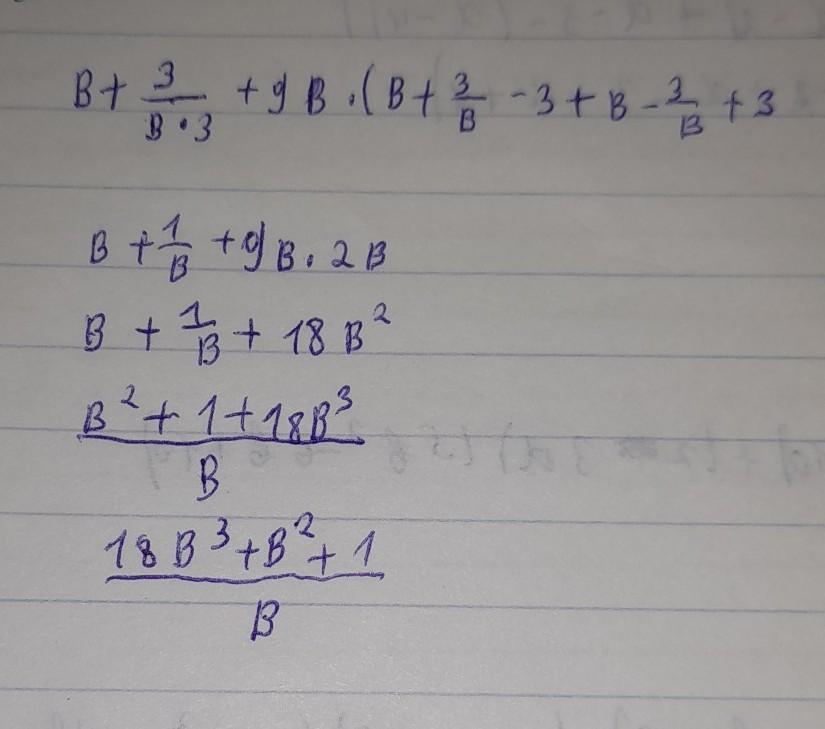 B + 3/(B · 3) + 9B · (B + 3/B - 3 + B - 3/B + 3
B + 1/B + 9B · 2B
B + 1/B + 18B²
(B² + 1 + 18B³)/B
(18B³ + B² + 1)/B